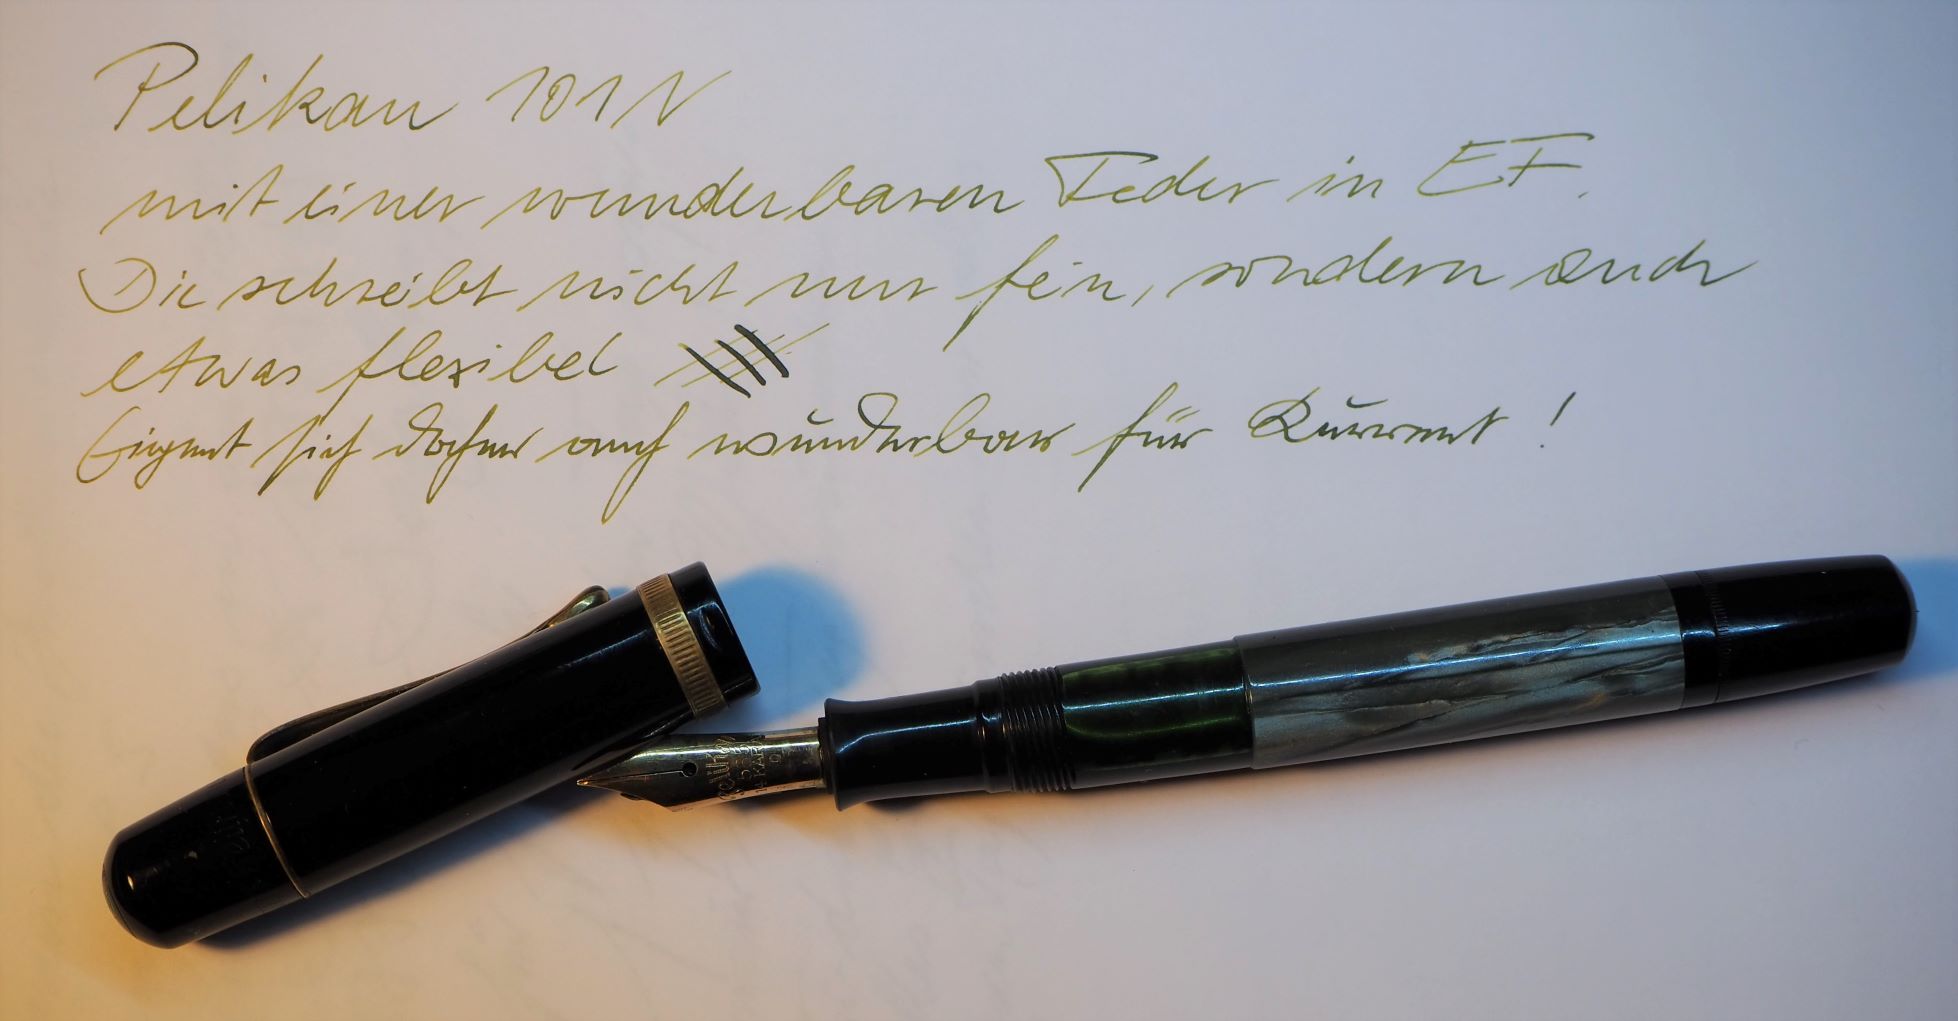 Pelikan 101N
mit einer wunderbaren Feder in EF.
Die schreibt nicht nur fein, sondern auch
etwas flexibel
Eignet sich daher auch wunderbar für Kurrent!
Pelikan
585
14 KARAT